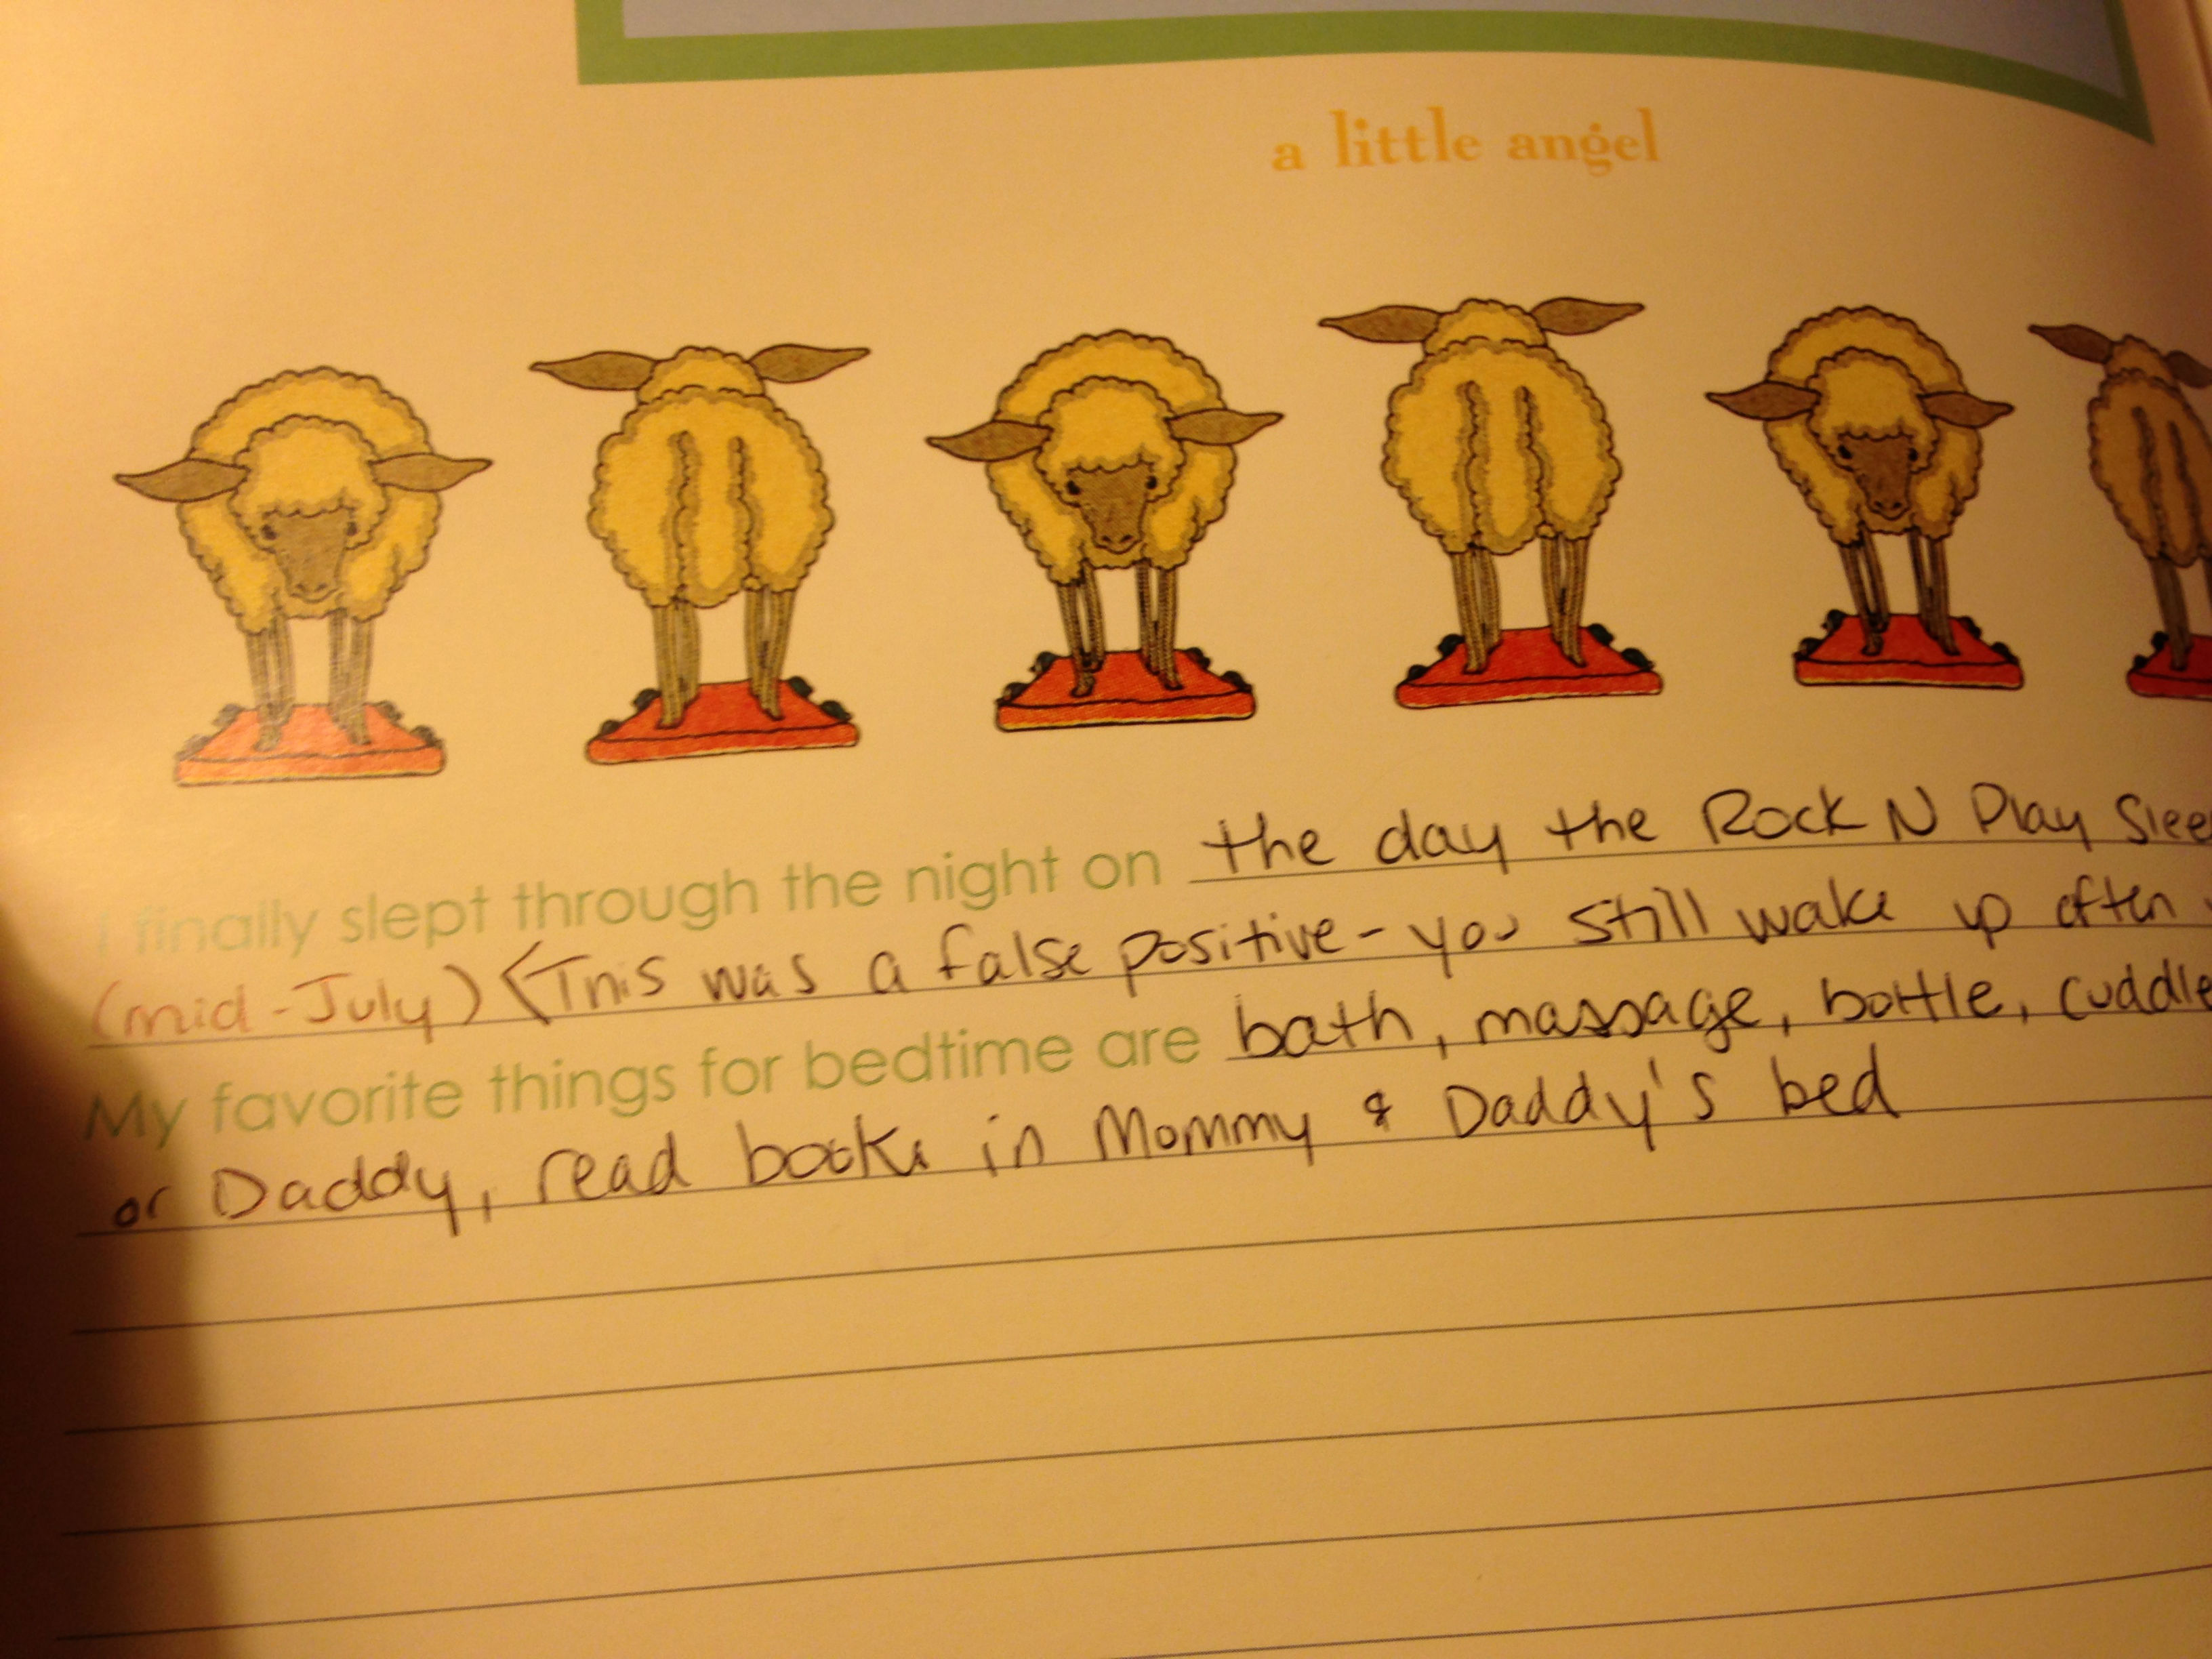 a little angel
I finally slept through the night on the day the Rock N Play
(mid-July) (This was a false positive - you still wake up often
My favorite things for bedtime are bath, massage, bottle, cuddle
or Daddy, read books in Mommy & Daddy's bed